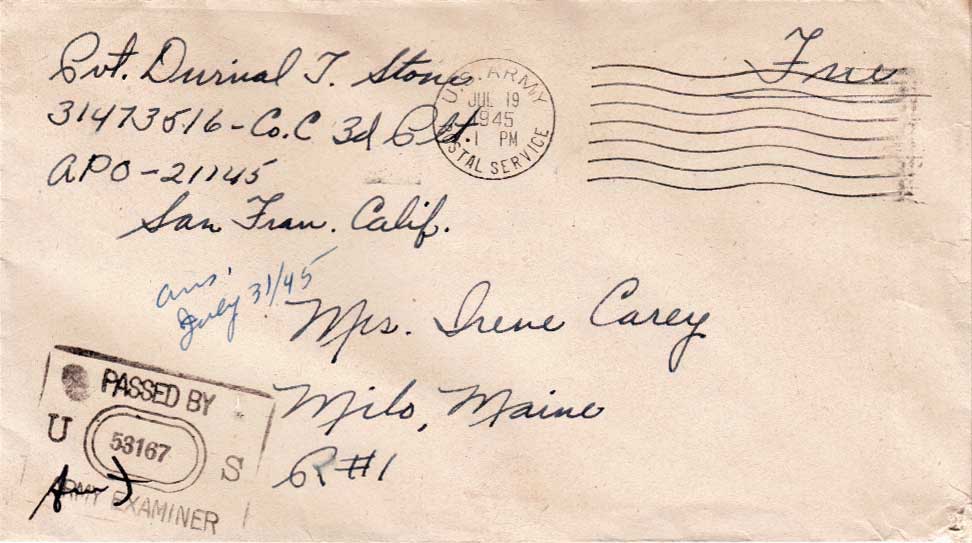 Pvt. Durival T. Stone
31473516-Co.C 3d Plt.
APO-21145
San Fran. Calif.
U.S. ARMY
JUL 19
1945
1 PM
POSTAL SERVICE
Free
ans'
July 31/45
Mrs. Irene Carey
Milo, Maine
R#1
PASSED BY
U 53167 S
ARMY EXAMINER